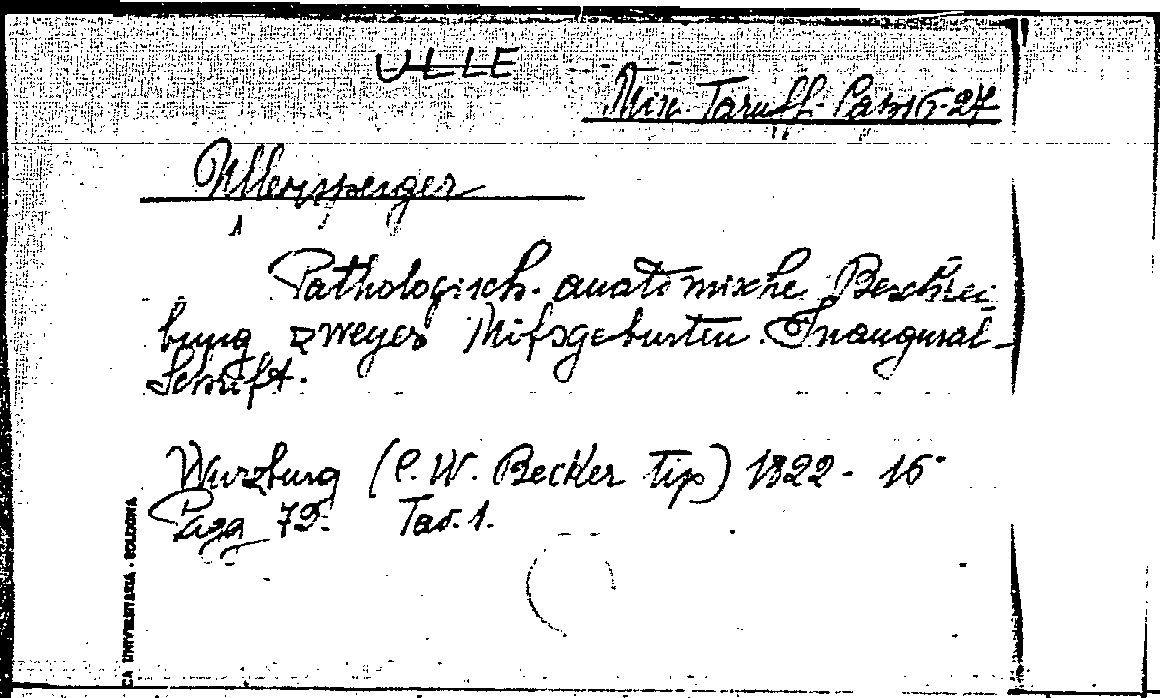 ULLE
Min. Taruffi. Pa
Ullersperger
Pathologisch. anatomische Beschrei-
bung zweyer Mifsgeburten. Inaugural-
Schrift.
Wurzburg (C. W. Becker tip) 1822 - 16°
Pagg 79. Tav. 1.
CA UNIVERSITARIA - BOLOGNA